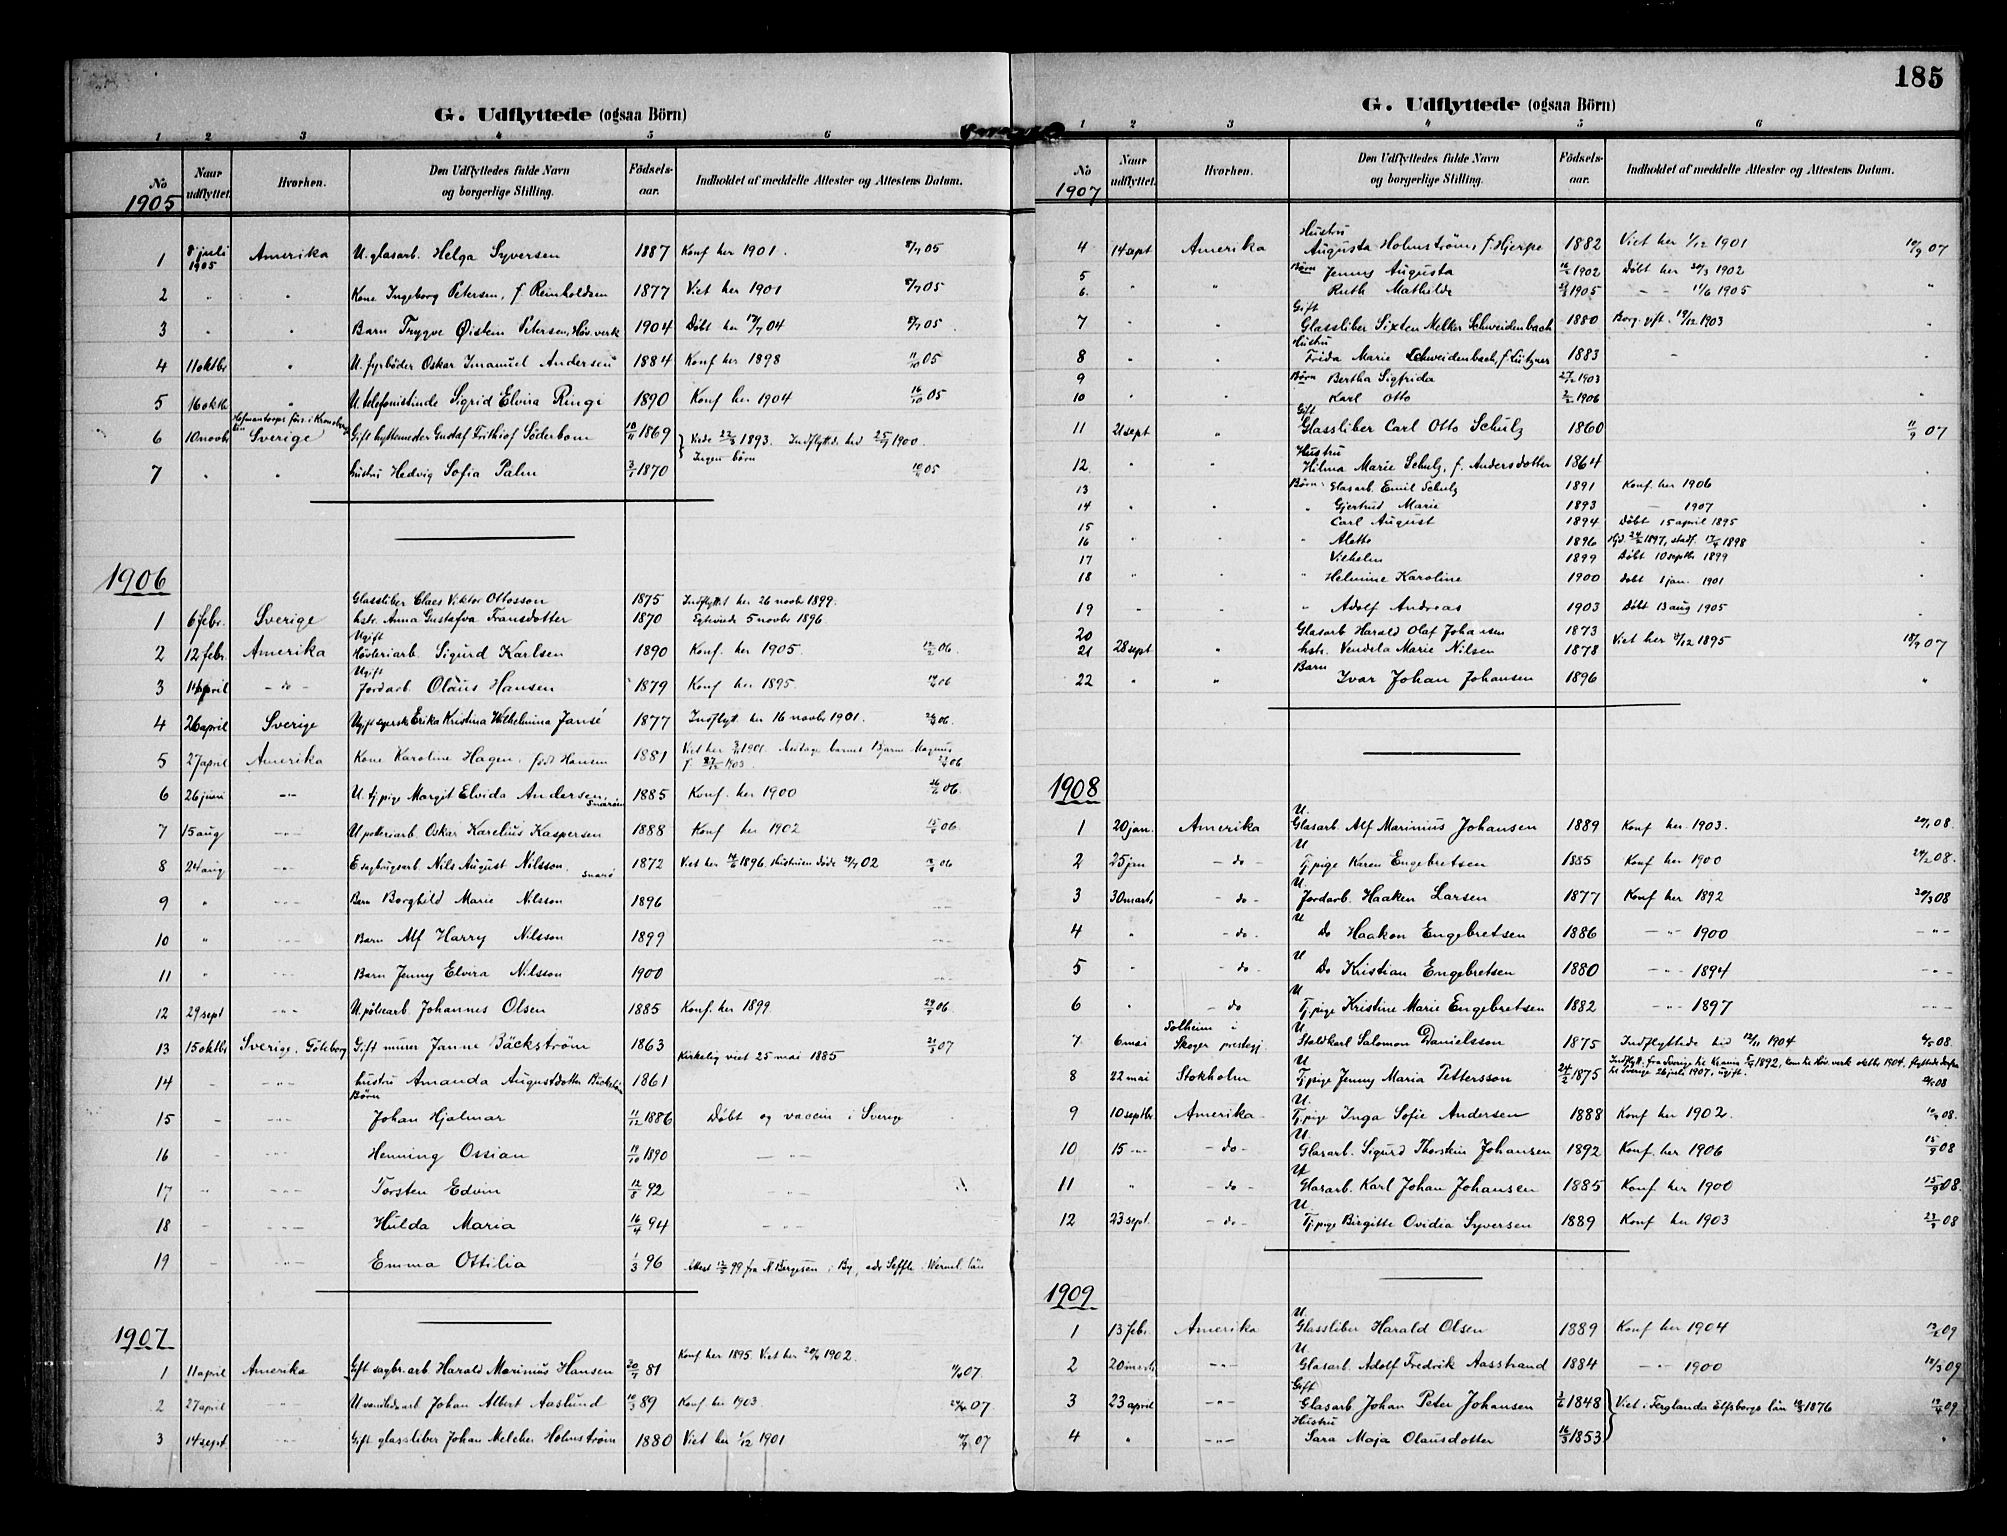 185
G. Udflyttede (ogsaa Börn)
1 2 3 4 5 6
No Naar udflyttet. Hvorhen. Den Udflyttedes fulde Navn og borgerlige Stilling. Födsels-aar. Indholdet af meddelte Attester og Attestens Datum.
1905
1 8 juli 1905 Amerika U. glasarb. Helga Syversen 1887 Konf her 1901. 8/7 05
2 " " Kone Ingeborg Petersen, f. Reinholdsen 1877 Viet her 1901 8/7 05
3 " " Barn Trygve Øistein Petersen, Høv. verk 1904 Døbt her 04 8/7 05
4 11 oktbr " U. fyrbøder Oskar Imanuel Andersen 1884 Konf her 1898 11/10 05
5 16 oktb " U. telefonistinde Sigrid Elvira Ringi 1890 Konf her 1904 16/10 05
6 10 novbr Sverige Gift hyttemester Gustaf Frithiof Söderbom 10/11 1869 Viede 1893. Indflytt. hid 1900.
Ingen børn
7 " " hustru Hedvig Sofia Palm 1870 05
1906
Glassliber Claes Viktor Ottosson 1875 Indflyttet her 26 novbr 1899.
1 6 febr. Sverige hstr. Anna Gustafva Fransdotter 1870 Egteviede 5 novbr 1896.
Ugift
2 12 febr. Amerika Høvleriarb. Sigurd Karlsen 1890 Konf. her 1905 12/2 06.
Ugift
3 april - do - Jordarb. Olaus Hansen 1879 Konf. her 1895. 06
4 26 april Sverige Ugift Erika Kristina Wilhelmina Jansé 1877 Indflytt. her 16 novbr 1901. 06.
5 27 april Amerika Kone Karoline Hagen, født Hansen 1881 Viet her 1901. Medtage barnet Bjarne Magnus
f. 1903. 06
6 26 juni -"- U. tj.pige Margit Elvida Andersen, Snarøn 1885 Konf. her 1900 06.
7 15 aug -"- U. Oskar Karelius Kaspersen 1888 Konf her 1902 06.
8 24 aug -"- E. sagbrugsarb. Nils August Nilsson. Snarø 1872 Viet her 1896. Hustruen døde 02 06
9 " -"- Barn Borghild Marie Nilsson 1896 -"-
10 " -"- Barn Alf Harry Nilsson 1899 -"-
11 " -"- Barn Jenny Elvira Nilsson 1900 -"-
12 29 sept -"- U. Johannes Olsen 1885 Konf. her 1899. 29/9 06.
13 15 oktbr Sverige. Göteborg Gift murer Janne Bäckström 1863 Kirkelig viet 25 mai 1885 07
14 - -"- hustru Amanda Augustdotter 1861
Børn
15 - -"- Johan Hjalmar 11/12 1886 Døbt og vaccin i Sverig
16 - -"- Henning Ossian 11/10 1890 -"-
17 " -"- Torsten Edvin 12/8 92 -"-
18 - -"- Hulda Maria 16/4 94 -"-
19 - -"- Emma Ottilia 1/3 96 Attest 99 fra N. Bergesen i By, adr Seffle. Werml. län
1907
1 11 april Amerika Gift sagbr. arb Harald Marinius Hansen 20/7 81 Konf her 1895. Viet her 1902. 07.
2 27 april -"- U. Johan Albert Aaslund 10/3 89 Konf her 1903. 07.
3 14 sept. -"- Gift glassliber Johan Melcher Holmström 1880 Viet her 1/12 1901 07
G. Udflyttede (ogsaa Börn)
1 2 3 4 5 6
No Naar udflyttet. Hvorhen. Den Udflyttedes fulde Navn og borgerlige Stilling. Födsels-aar. Indholdet af meddelte Attester og Attestens Datum.
1907
Hustru
4 14 sept Amerika Augusta Holmström, f. Hjerpe 1882 Viet her 1/12 1901 10/9 07
5 Børn Jenny Augusta 1902 Døbt her 1902
6. " " Ruth Mathilde 1905 - - 11/6 1905 "
Gift
7 " " Glassliber Sixten Melker Schweidenbach 1880 Borg. gift. 1903 "
Hustru
8 " " Frida Marie Schweidenbach, f. Lützner 1883 - "
9 Børn Bertha Sigfrida 1903
10 " " Karl Otto 1906 "
Gift
11 21 sept " Glassliber Carl Otto Schulz 1860 11/9 07
Hustru
12 " " Hilma Marie Schulz, f. Andersdotter 1864
13 Børn: Glasarb. Emil Schulz 1891 Konf. her 1906
14 " " " Gjertrud Marie 1893 - 1907 "
15 Carl August 1894 Døbt 15 april 1895
16 " " " Aletto 1896 1897, stadf. 1898
17 Vilhelm 1899 Døbt 10 septbr 1899
18 " " " Helmine Karoline 1900 Døbt 1 jan. 1901 "
19 " " " Adolf Andreas 1903 Døbt 13 aug 1905 "
20 Glasarb Harald Olaf Johansen 1873
21 28 sept " hstr. Vendela Marie Nilsen 1878 Viet her 1895 18/9 07
Barn
22 " " Ivar Johan Johansen 1896 "
1908
U.
1 20 jan. Amerika Glasarb. Alf Marinius Johansen 1889 Konf her 1903. 20/1 08.
U
2 25 jan - do - Tj. pige Karen Engebretsen 1885 Konf her 1900 08.
U.
3 30 marts - do - Jordarb. Haaken Larsen 1877 Konf her 1892 20/3 08
U
4 " - do - Do Haakon Engebretsen 1886 -"- 1900 -"-
U
5 " - do - Do Kristian Engebretsen 1880 -"- 1894 -"-
U
6 " - do Tj. pige Kristine Marie Engebretsen 1882 -"- 1897 -"-
Solheim i U.
7 6 mai Skoger prestegj. Staldkarl Salomon Danielsson 1875 Indflyttede hid 1904 08.
U
8 22 mai Stokholm Tj. pige Jenny Maria Pettersson 24/2 1875 Indflytt. fra Sverige til Krania 1892, kom til Høv. verk oktbr 1904, flyttede derfra
til Sverige 26 juli 1907, ugift. 08
U.
9 10 septbr Amerika Tj. pige Inga Sofie Andersen 1888 Konf her 1902. 08.
U.
10 15 -"- - do - Glasarb. Sigurd Thorstein Johansen 1892 Konf. her 1906 15/9 08
U
11 " - do - Glasarb. Karl Johan Johansen 1885 Konf. her 1900 15/9 08.
U.
12 23 sept. - do - Tj. pige Birgitte Ovidia Syversen 1889 Konf her 1903 23/9 08
1909
U.
1 13 febr. Amerika Glassliber Harald Olsen 1889 Konf her 1904 09
U
2 20 marts -"- Glasarb. Adolf Fredrik Aasstrand 1884 -"- 1900 09
Gift
3 23 april -"- Glasarb Johan Peter Johansen 1848 Viet i Elfsborgs län 1876 09.
Hustru
4 " -"- Sara Maja Olausdotter 1853 "